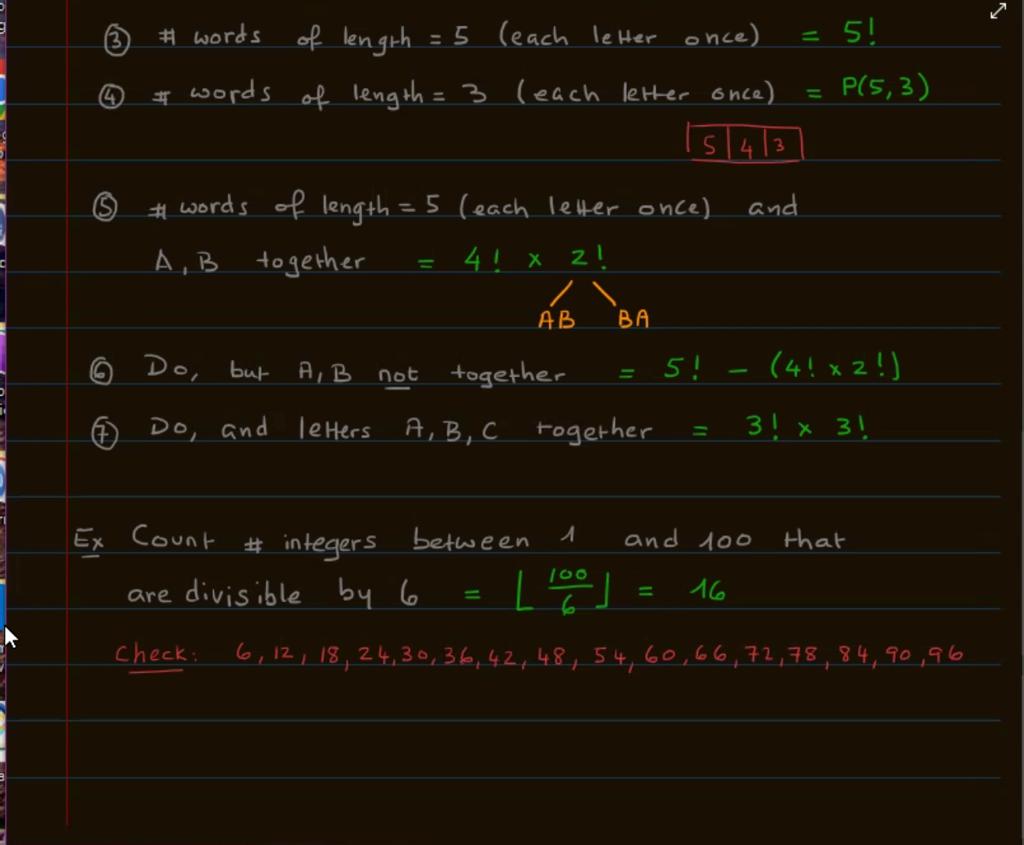 ③ # words of length = 5 (each letter once) = 5!
④ # words of length = 3 (each letter once) = P(5,3)
5 4 3
⑤ # words of length = 5 (each letter once) and
A, B together = 4! x 2!
AB BA
⑥ Do, but A, B not together = 5! - (4! x 2!)
⑦ Do, and letters A, B, C together = 3! x 3!
Ex Count # integers between 1 and 100 that
are divisible by 6 = ⌊100/6⌋ = 16
Check: 6, 12, 18, 24, 30, 36, 42, 48, 54, 60, 66, 72, 78, 84, 90, 96